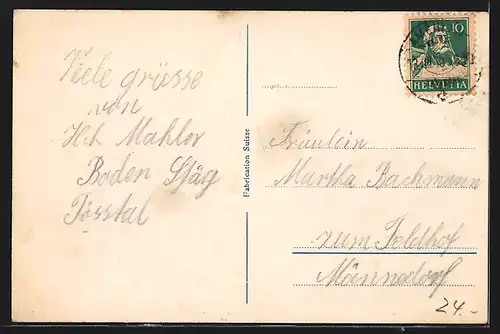 Viele grüsse
von
Hch Mahler
Boden Stäg
Tösstal
Fabrication Suisse
10
HELVETIA
Fräulein
Martha Bachmann
zum Feldhof
Männedorf
24.-